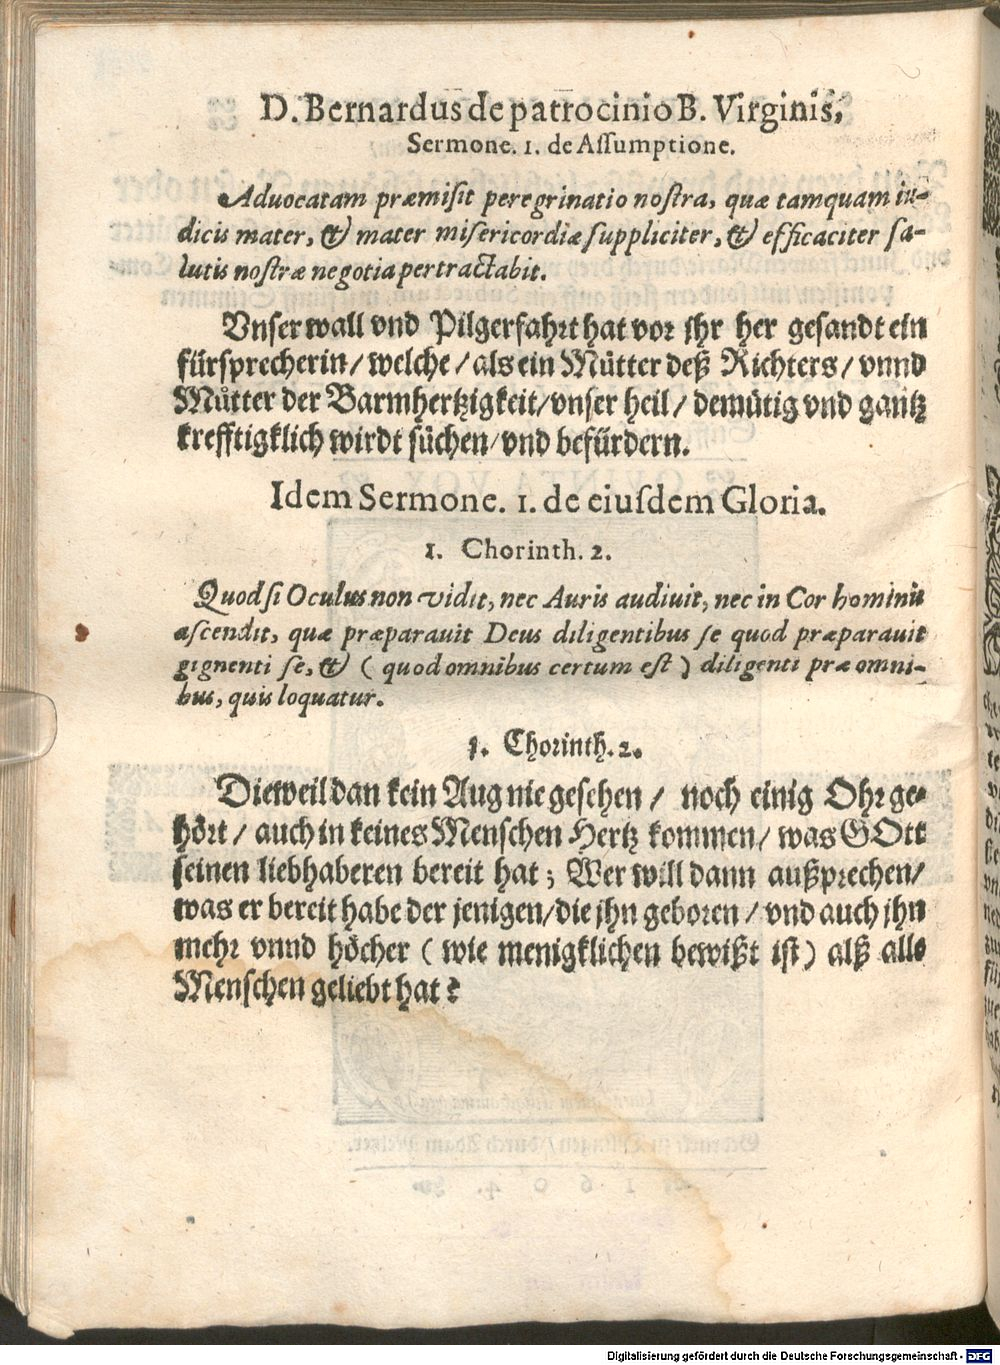 D. Bernardus de patrocinio B. Virginis,
Sermone. 1. de Aſſumptione.
Aduocatam præmiſit peregrinatio noſtra, quæ tamquam iu-
dicis mater, & mater miſericordiæ ſuppliciter, & efficaciter ſa-
lutis noſtræ negotia pertractabit.
Vnser wall vnd Pilgerfahrt hat vor jhr her geſandt ein
fürſprecherin / welche / als ein Mütter deß Richters / vnnd
Mütter der Barmhertzigkeit / vnſer heil / demütig vnd gantz
krefftigklich wirdt ſüchen / vnd befürdern.
Idem Sermone. 1. de eiuſdem Gloria.
1. Chorinth. 2.
Quod ſi Oculus non vidit, nec Auris audiuit, nec in Cor hominis
aſcendit, quæ præparauit Deus diligentibus ſe quod præparauit
gignenti ſe, & ( quod omnibus certum eſt ) diligenti præ omni-
bus, quis loquatur.
1. Chorinth. 2.
Dieweil dan kein Aug nie geſehen / noch einig Ohr ge-
hört / auch in keines Menſchen Hertz kommen / was GOtt
ſeinen liebhaberen bereit hat ; Wer will dann außſprechen /
was er bereit habe der jenigen / die jhn geboren / vnd auch jhn
mehr vnnd höcher ( wie menigklichen bewißt iſt ) alß alle
Menſchen geliebt hat ?
Digitalisierung gefördert durch die Deutsche Forschungsgemeinschaft - DFG